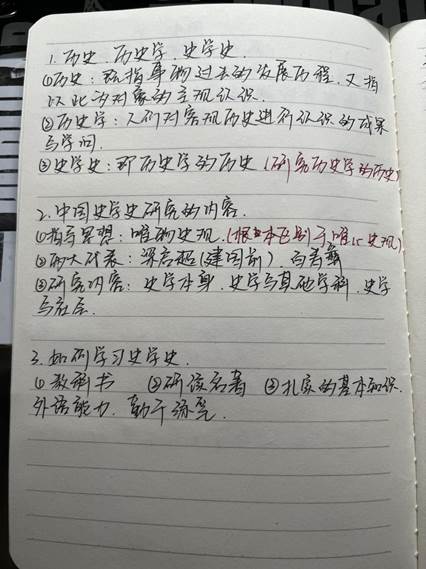 1.历史、历史学、史学史.
①历史：既指事物过去的发展历程,又指
以此为对象的主观认识.
②历史学：人们对客观历史进行认识的成果
与学问.
③史学史：即历史学的历史(研究历史学的历史)
2.中国史学史研究的内容.
①指导思想：唯物史观.(根本区别于唯心史观).
②两大代表：梁启超(建国前)、白寿彝
③研究内容：史学本身、史学与其他学科、史学
与社会.
3.如何学习史学史.
①教科书 ②研读名著 ③扎实的基本知识.
外语能力、勤于练笔.